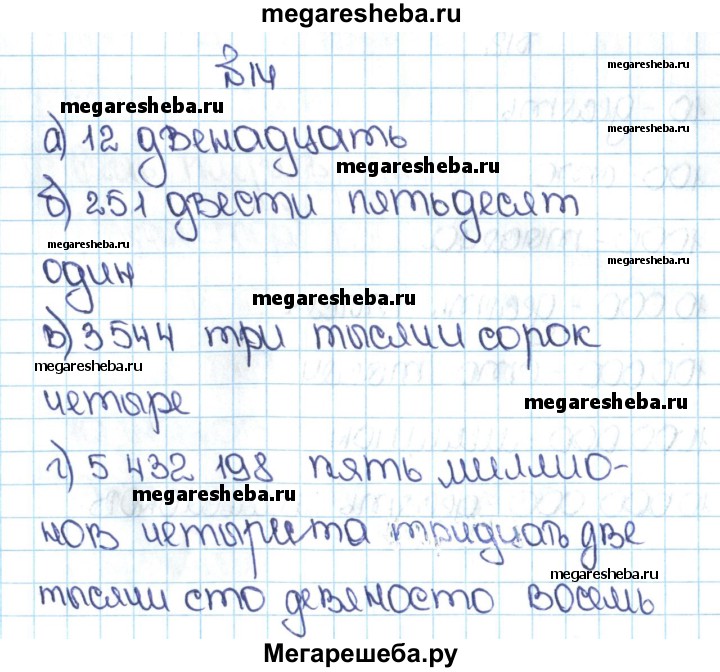 megaresheba.ru
№14
megaresheba.ru
а) 12 двенадцать
megaresheba.ru
megaresheba.ru
б) 251 двести пятьдесят
megaresheba.ru
один
megaresheba.ru
в) 3 544 три тысячи сорок
megaresheba.ru
четыре
megaresheba.ru
г) 5 432 198 пять миллио-
megaresheba.ru
нов четыриста тридцать две
megaresheba.ru
тысячи сто девяносто восемь
Мегарешеба.ру